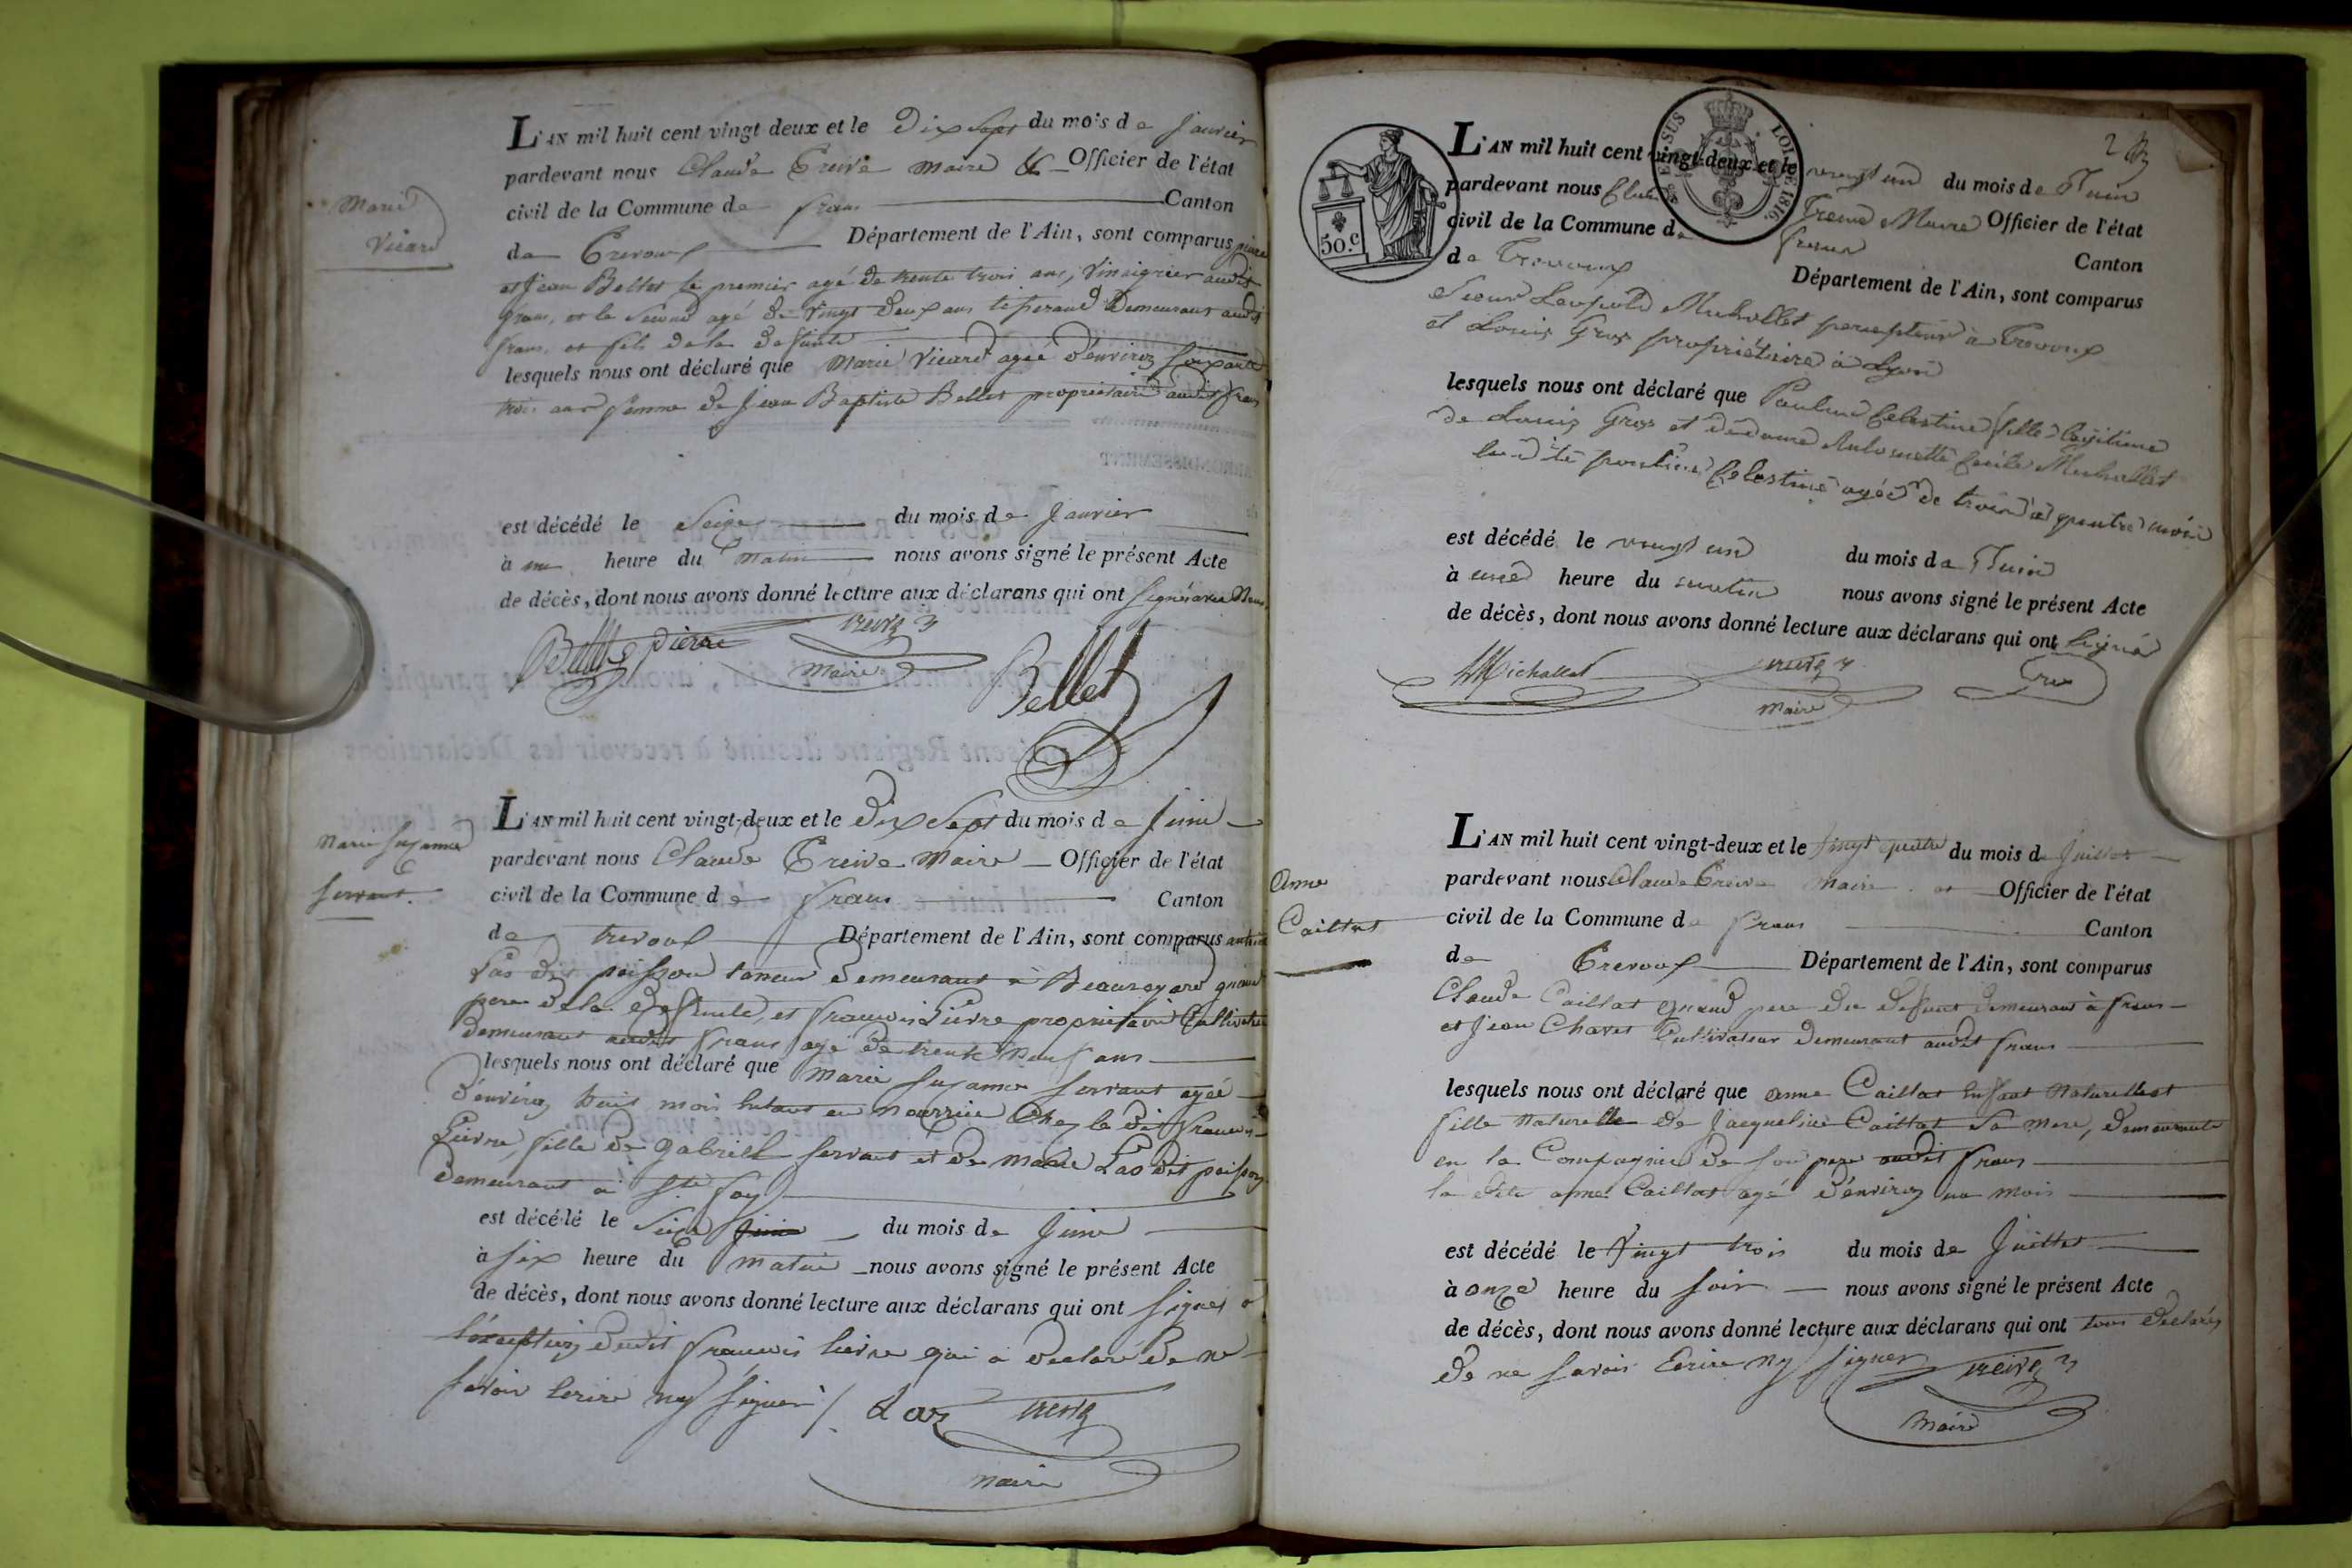 Marie
Vicard
L'AN mil huit cent vingt-deux et le Dix Sept du mois de Janvier
pardevant nous Claude Treive maire & Officier de l'état
civil de la Commune de frans Canton
de Trevoux Département de l'Ain, sont comparus pierre
et Jean Bellet le premier agé de trente trois ans, Vinaigrier audit
frans, et le Second agé de Vingt Deux ans Demeurant audit
frans, et fils de la defunte
lesquels nous ont déclaré que Marie Vicard agée d'environ Soixante
trois ans femme de Jean Baptiste Bellet propriétaire audit frans
est décédé le Seize du mois de Janvier
à une heure du Matin nous avons signé le présent Acte
de décès, dont nous avons donné lecture aux déclarans qui ont Signés avec Nous
Bellet pierre Treive
Maire
Bellet
Marie Suzanne
Servant.
L'AN mil huit cent vingt-deux et le Dix Sept du mois de Juin
pardevant nous Claude Treive Maire Officier de l'état
civil de la Commune de frans Canton
de trevoux Département de l'Ain, sont comparus
Las dit poisson Demeurant à Beauregard grand
pere de la defunte, et francois Lievre propriétaire Cultivateur
Demeurant audit frans agé de trente neuf ans
lesquels nous ont déclaré que Marie Suzanne Servant agée
d'environ huit mois Enfant en nourrice Chez le dit francois
Lievre, fille de gabriel Servant et de Marie Las dit poisson
Demeurant à Ste foy
est décédé le Seize Juin du mois de Juin
à Six heure du matin nous avons signé le présent Acte
de décès, dont nous avons donné lecture aux déclarans qui ont Signés a
l'exception dudit francois lievre qui a Declaré De ne
savoir Ecrire ny Signer /. Las Treive
Maire
L'AN mil huit cent vingt-deux et le vingt un du mois de Juin
pardevant nous Claude Treive Maire Officier de l'état
civil de la Commune de frans Canton
de Trevoux Département de l'Ain, sont comparus
Sieur Leopold Michallet percepteur à Trevoux
et Louis Gros propriétaire à Lyon
lesquels nous ont déclaré que Pauline Celestine fille légitime
de Louis Gros et de dame Antoinette Cécile Michallet
ladite pauline Celestine agée de trois à quatre mois
est décédé le vingt un du mois de Juin
à une heure du matin nous avons signé le présent Acte
de décès, dont nous avons donné lecture aux déclarans qui ont Signé
Michallet Treive Gros
Maire
50.c
LOI DE 1816.
Anne
Caillat
L'AN mil huit cent vingt-deux et le Vingt quatre du mois de Juillet
pardevant nous Claude Treive Maire et Officier de l'état
civil de la Commune de frans Canton
de Trevoux Département de l'Ain, sont comparus
Claude Caillat grand pere du Defunt Demeurant à frans
et Jean Chavet Cultivateur Demeurant audit frans
lesquels nous ont déclaré que anne Caillat Enfant Naturelle et
fille Naturelle de Jacqueline Caillat Sa Mere, Demeurante
en la Compagnie de Son pere audit frans
la dite anne Caillat agé d'environ un mois
est décédé le Vingt trois du mois de Juillet
à onze heure du Soir nous avons signé le présent Acte
de décès, dont nous avons donné lecture aux déclarans qui ont tous Declarés
De ne Savoir Ecrire ny Signer Treive
Maire